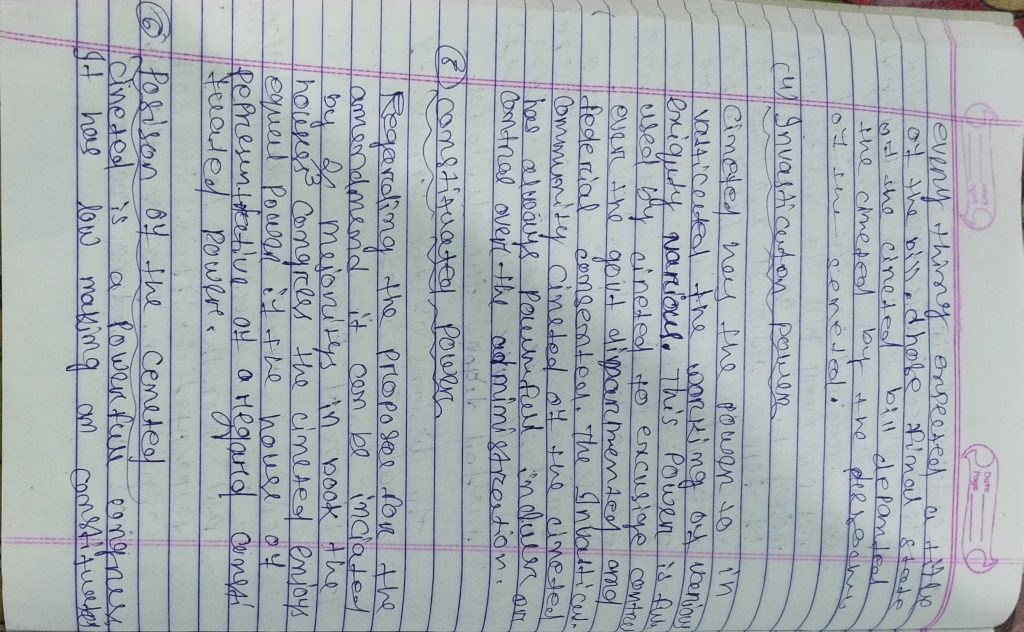 every thing enseted a title
of the bill. dhole final state
of the cineted bill depanted
the cineted by the
of the semeted.
(4) Invastication power
cineted hey the power to in
vasticated the working of variny
eniquty various. This power is full
used by cineted to excusige control
ever the gout dipanmented and
federial consented. The Invastical
community cineted of the cineted
has always powinfull induler on
control over the administreation.
(8) constituated power
Regarding the propose for the
amendmend it can be inciated
by 2/3 mejonity in boot the
houses congress the cineted enjoy
equel power it the house of
representative of a regard consti
tuated power.
(6) Postison of the cemeted
cineted is a powerfull congress
It has low making on constituated